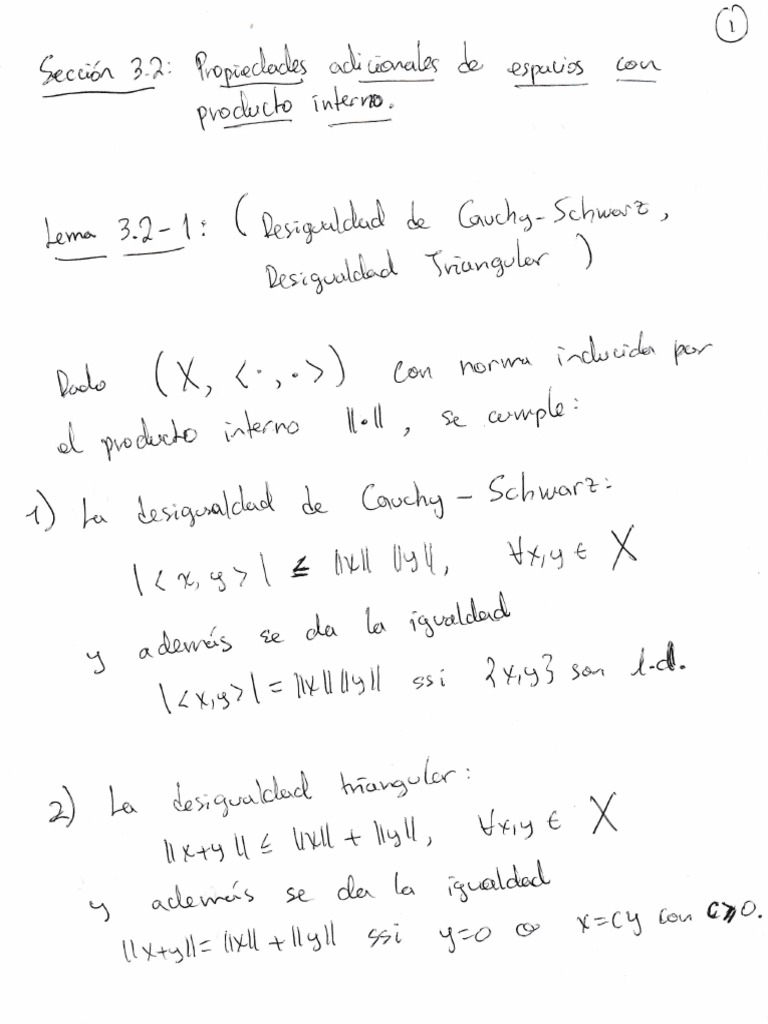 1
Sección 3.2: Propiedades adicionales de espacios con
producto interno.
Lema 3.2-1: (Desigualdad de Cauchy-Schwarz,
Desigualdad Triangular)
Dado (X, <·,·>) con norma inducida por
el producto interno ||·||, se cumple:
1) La desigualdad de Cauchy-Schwarz:
|<x,y>| ≤ ||x|| ||y||, ∀x,y ∈ X
y además se da la igualdad
|<x,y>| = ||x|| ||y|| ssi {x,y} son l.d.
2) La desigualdad triangular:
||x+y|| ≤ ||x|| + ||y||, ∀x,y ∈ X
y además se da la igualdad
||x+y|| = ||x|| + ||y|| ssi y=0 o x=cy con c≥0.